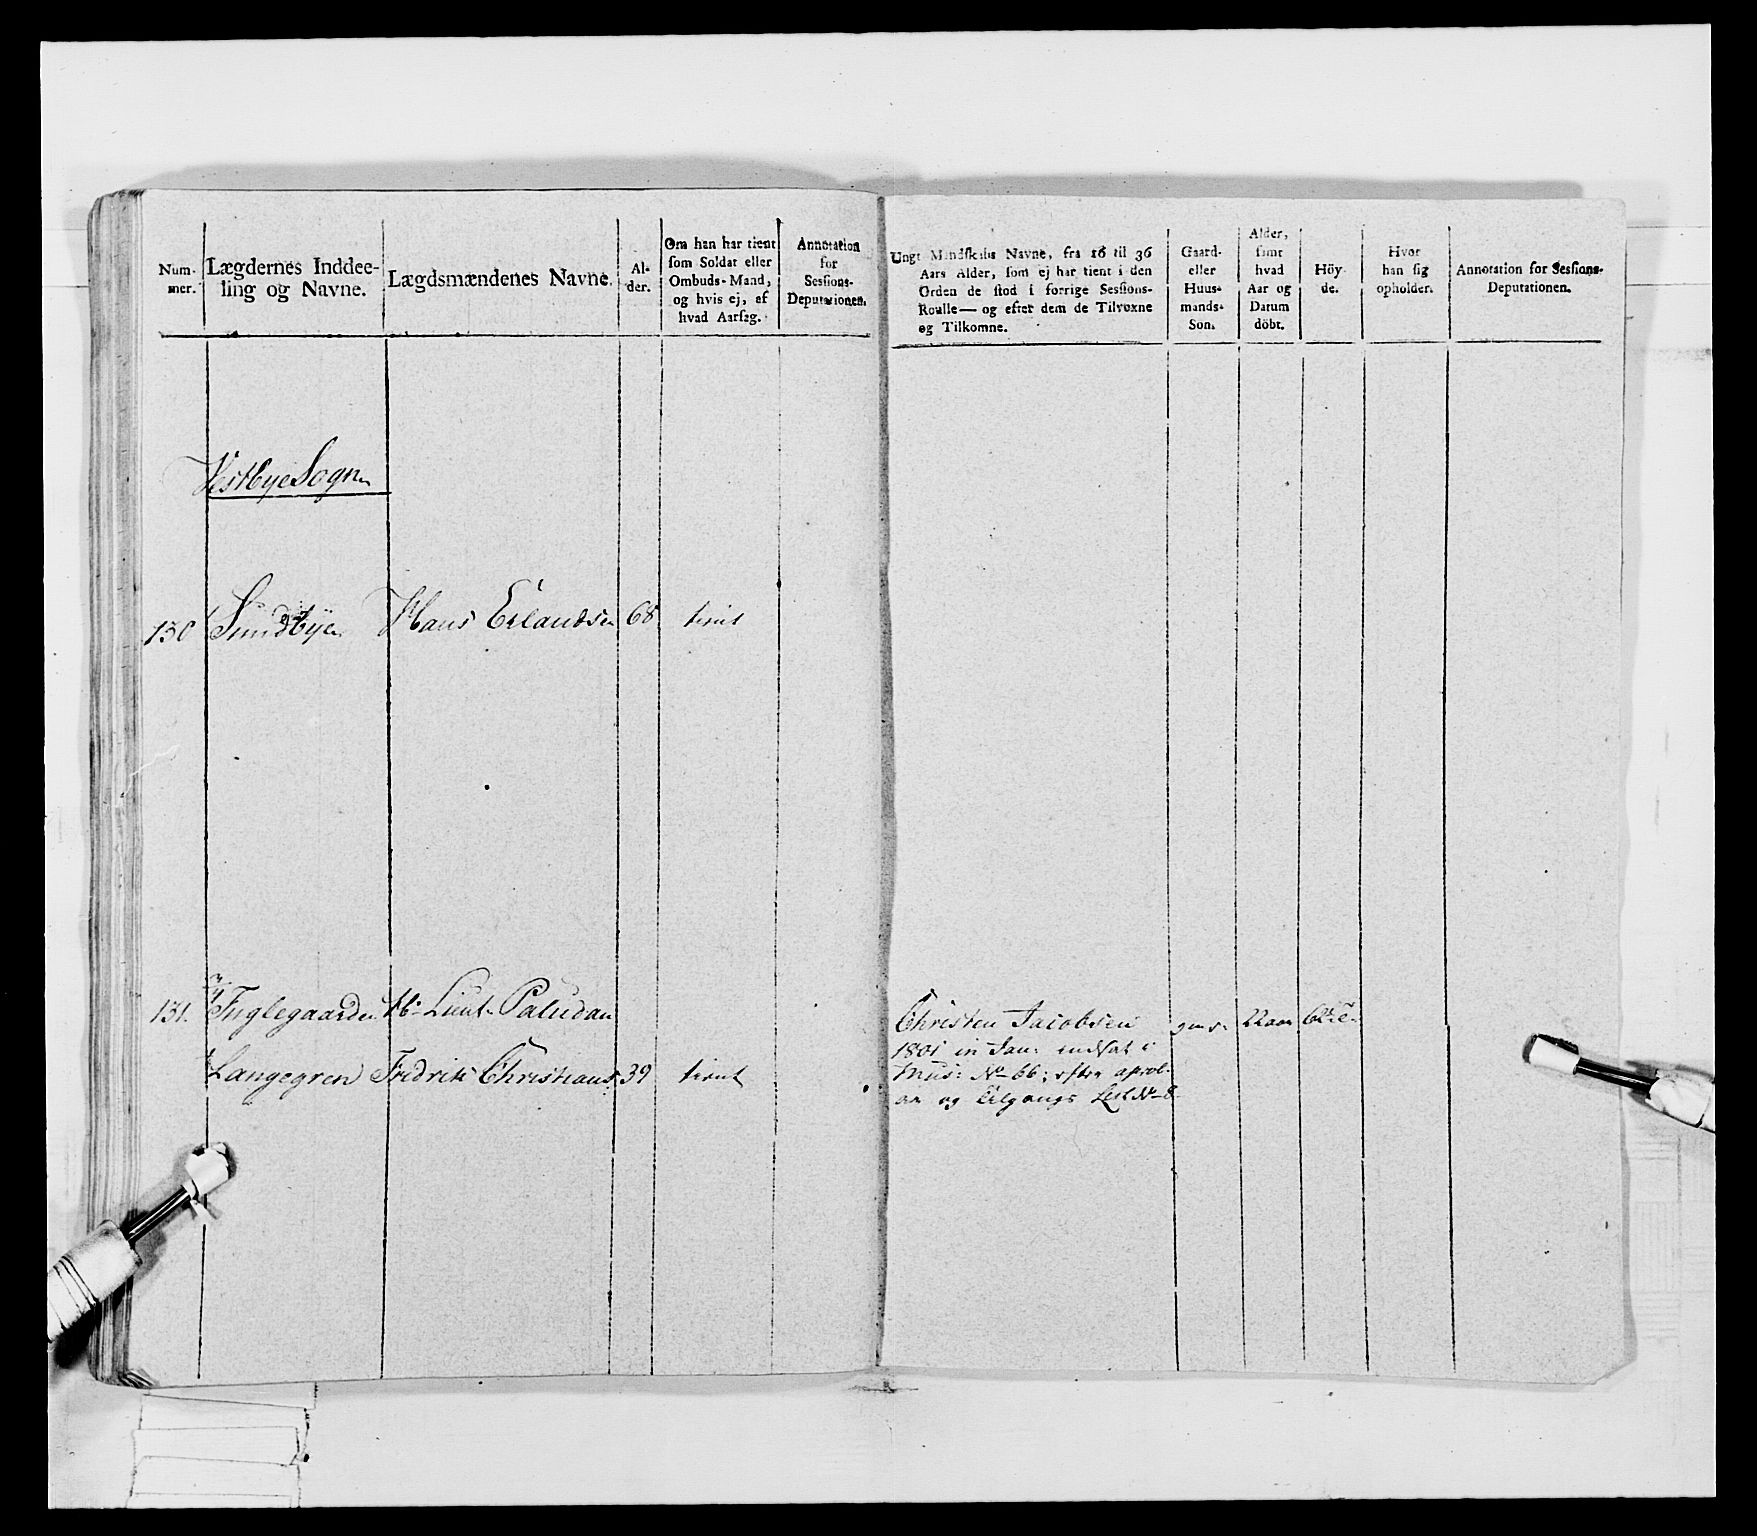 Num-
mer.
Lægdernes Inddee-
ling og Navne.
Lægdsmændenes Navne.
Al-
der.
Om han har tient
som Soldat eller
Ombuds-Mand,
og hvis ej, af
hvad Aarsag.
Annotation
for
Sessions-
Deputationen.
Ungt Mandskabs Navne, fra 16 til 36
Aars Alder, som ej har tient i den
Orden de stod i forrige Sessions-
Roulle — og efter dem de Tilvoxne
og Tilkomne.
Gaard-
eller
Huus-
mands-
Søn.
Alder,
samt
hvad
Aar og
Datum
döbt.
Höy-
de.
Hvor
han sig
opholder.
Annotation for Sessions-
Deputationen.
Vestbye Sogn
130 Sundbye Hans Erlandsen 68 tient
131. Fuglegaarden Lieut. Paludan
Christen Jacobsen 22 aar
Langegren Fridrik Christians 39 tient
1801 in Jan: indsat i
Mus: No 66; efter
og Tilgangs List No 8